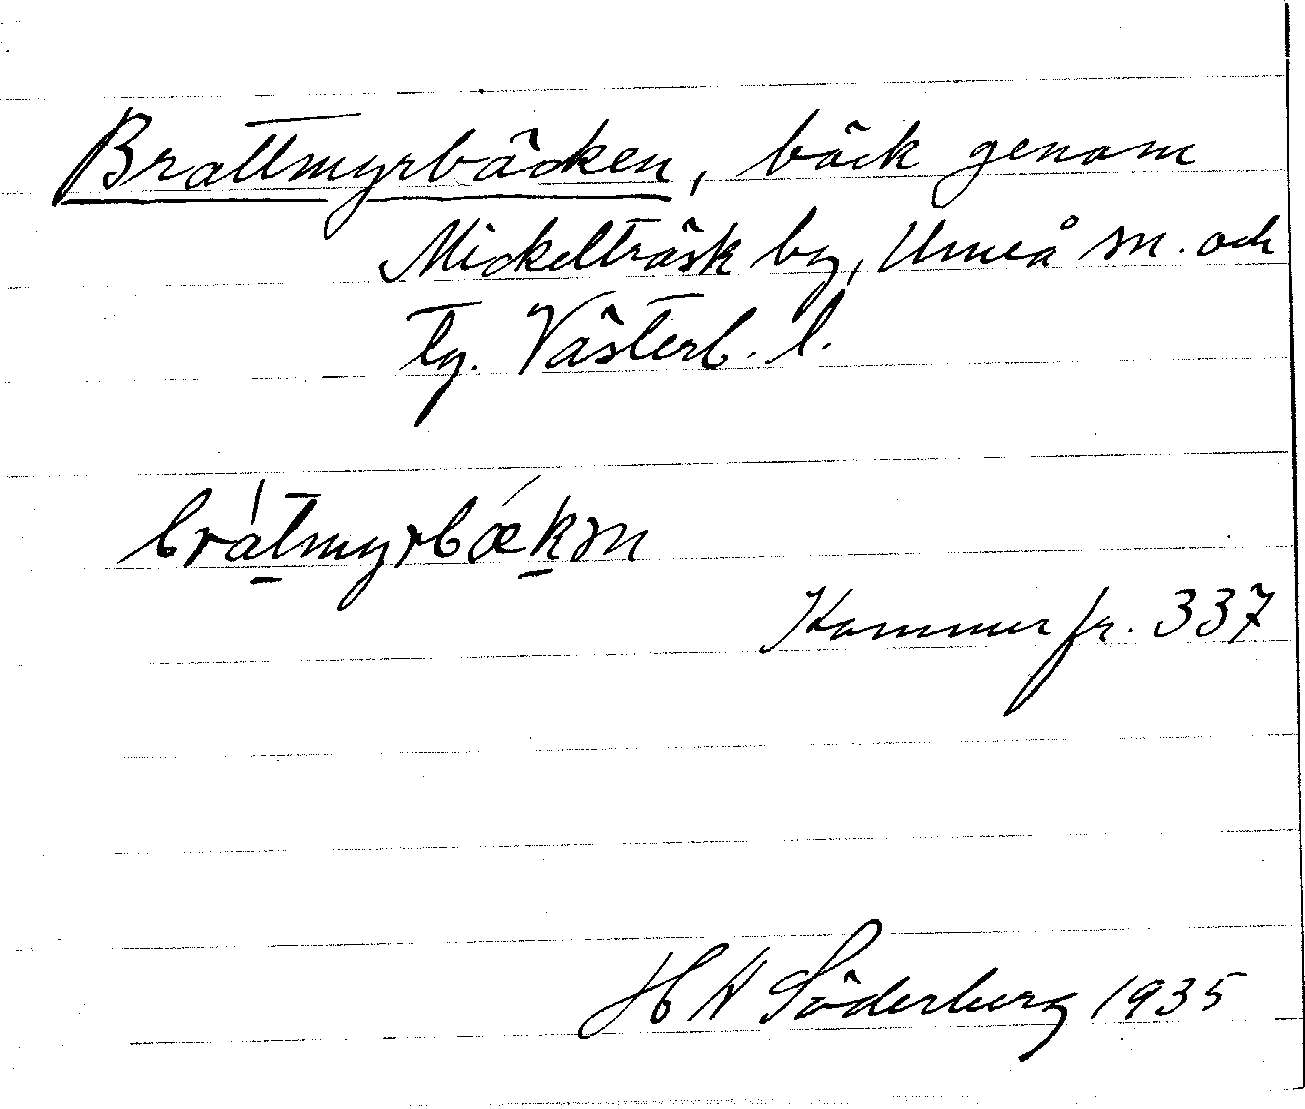 Brattmyrbäcken, bäck genom
Mickelträsk by, Umeå sn. och
tg. Västerb. l.
bra̲tmyrbæk̲ən
Kommer fr. 337
H H Söderberg 1935